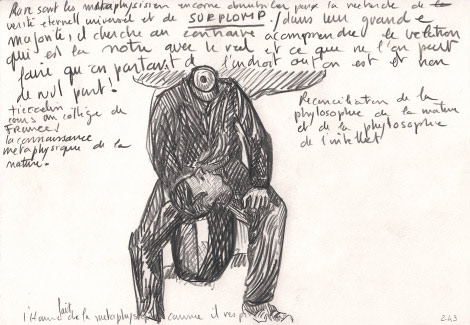 Rare sont les métaphysicien encore obnubiler par la recherche de la
verité eternell universel et de SURPLOMP./dans leur grande
majorité; il cherche au contraire a comprendre le relation
qui est la notre avec le réel et ce que ne l'on peut
faire qu'en partant de l'endroit ou l'on est et non
de nul part!
tiercelin
cours au collège de
France/
la connaissance
métaphysique de la
nature.
Reconciliation de la
phylosophie de la nature
et de la phylosophie
de l'intellet
l'Homme fait de la metaphysique comme il respire
243